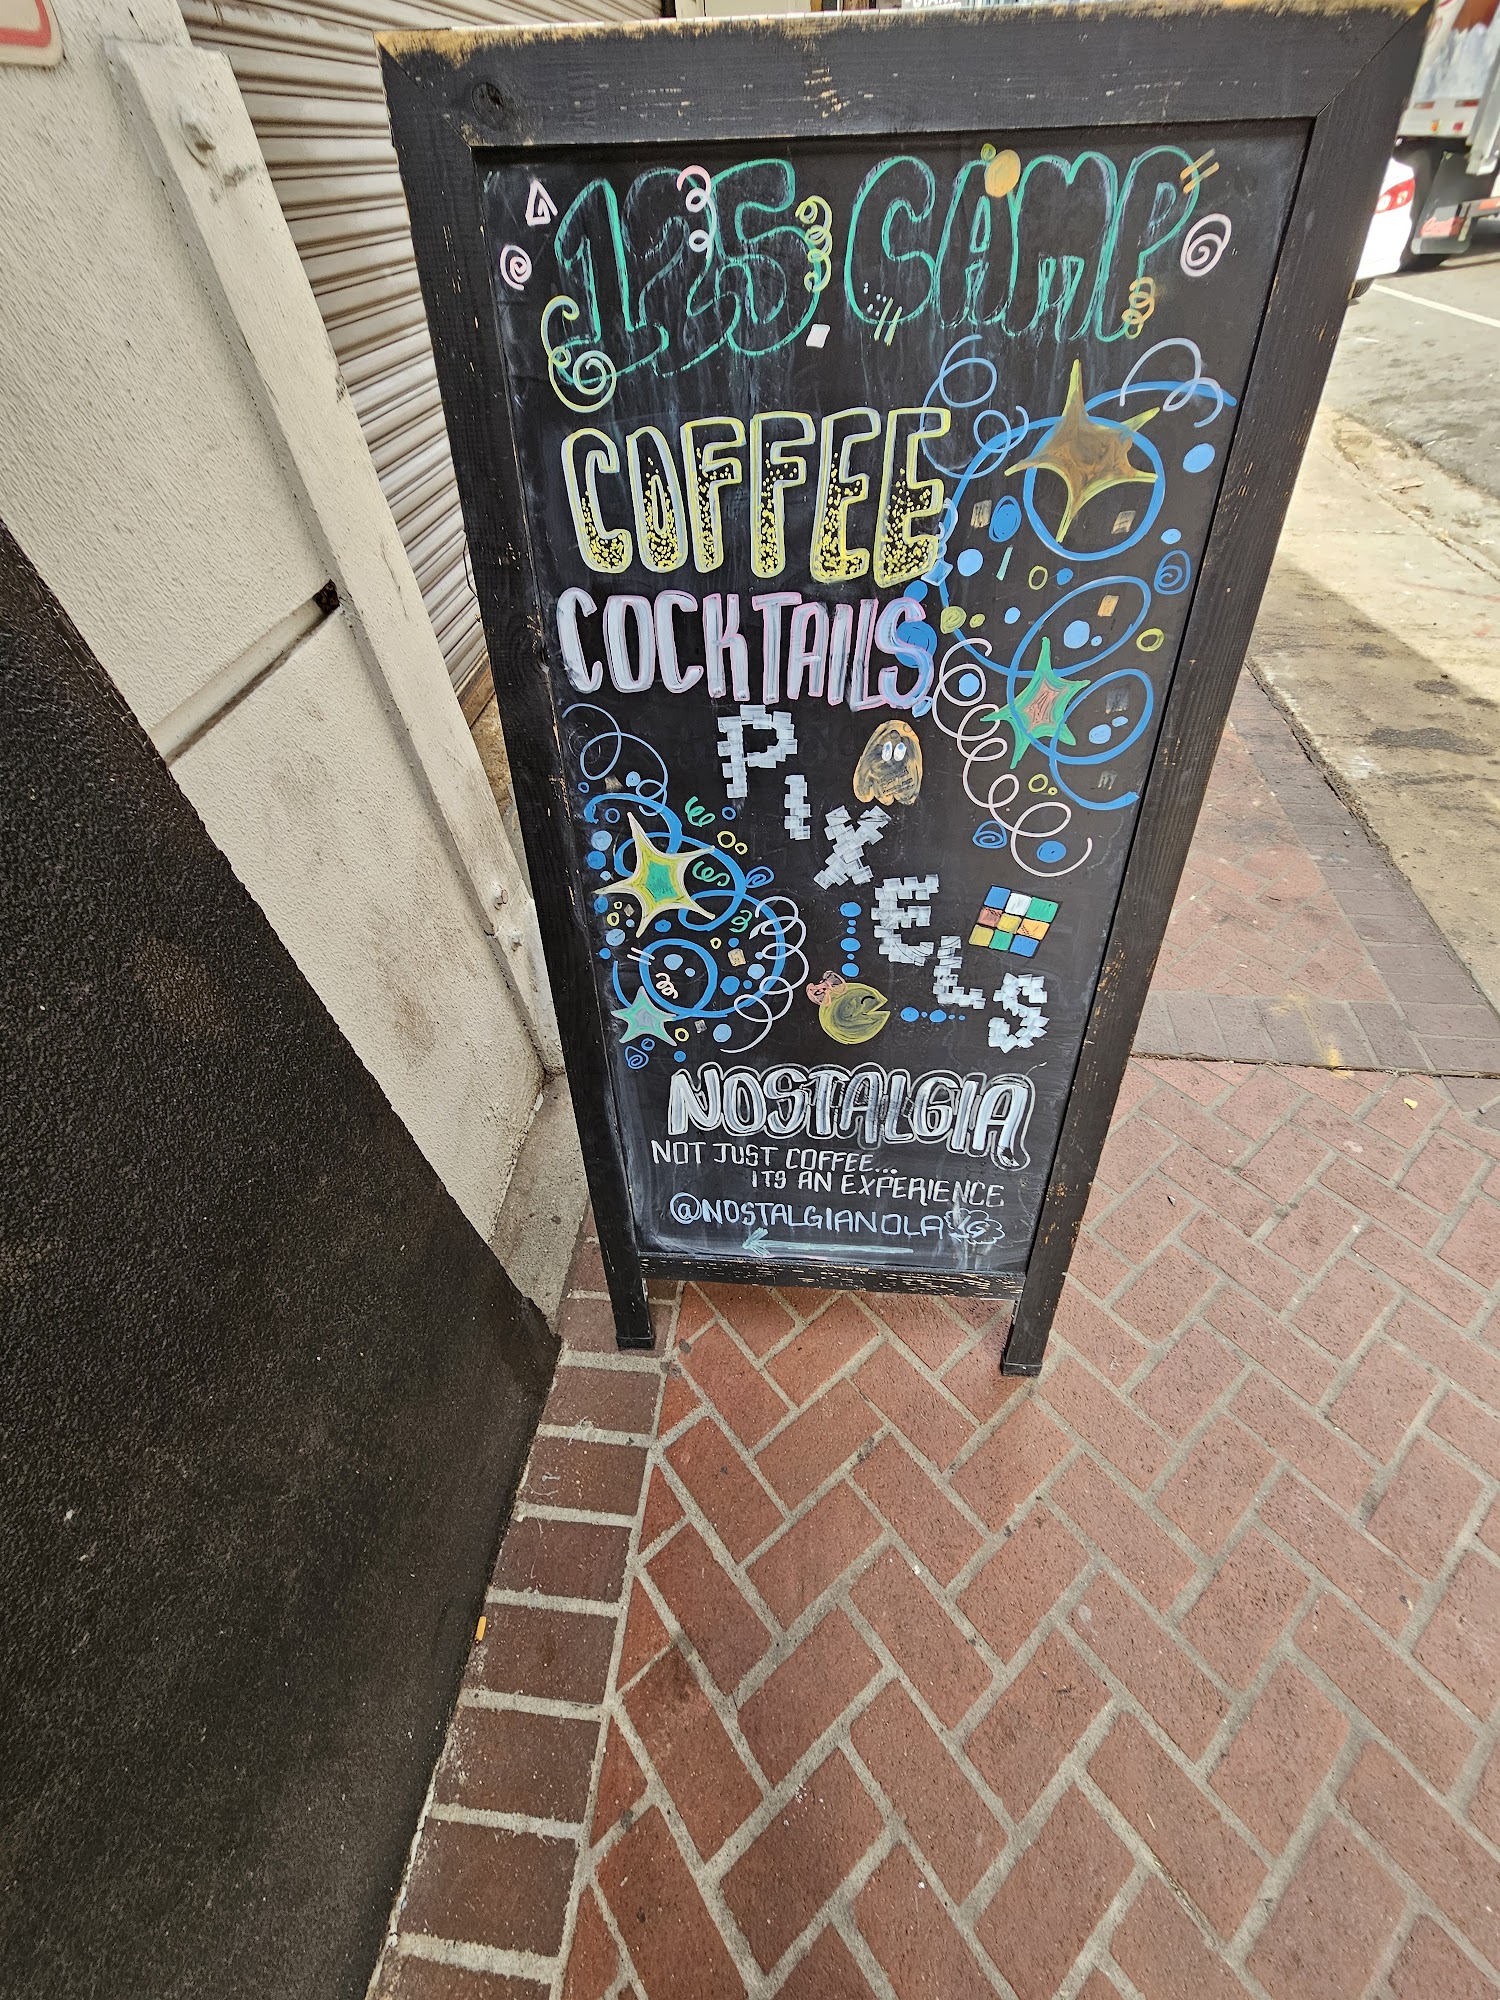 125 CAMP
COFFEE
COCKTAILS
PIXELS
NOSTALGIA
NOT JUST COFFEE...
ITS AN EXPERIENCE
@NOSTALGIANOLA IG